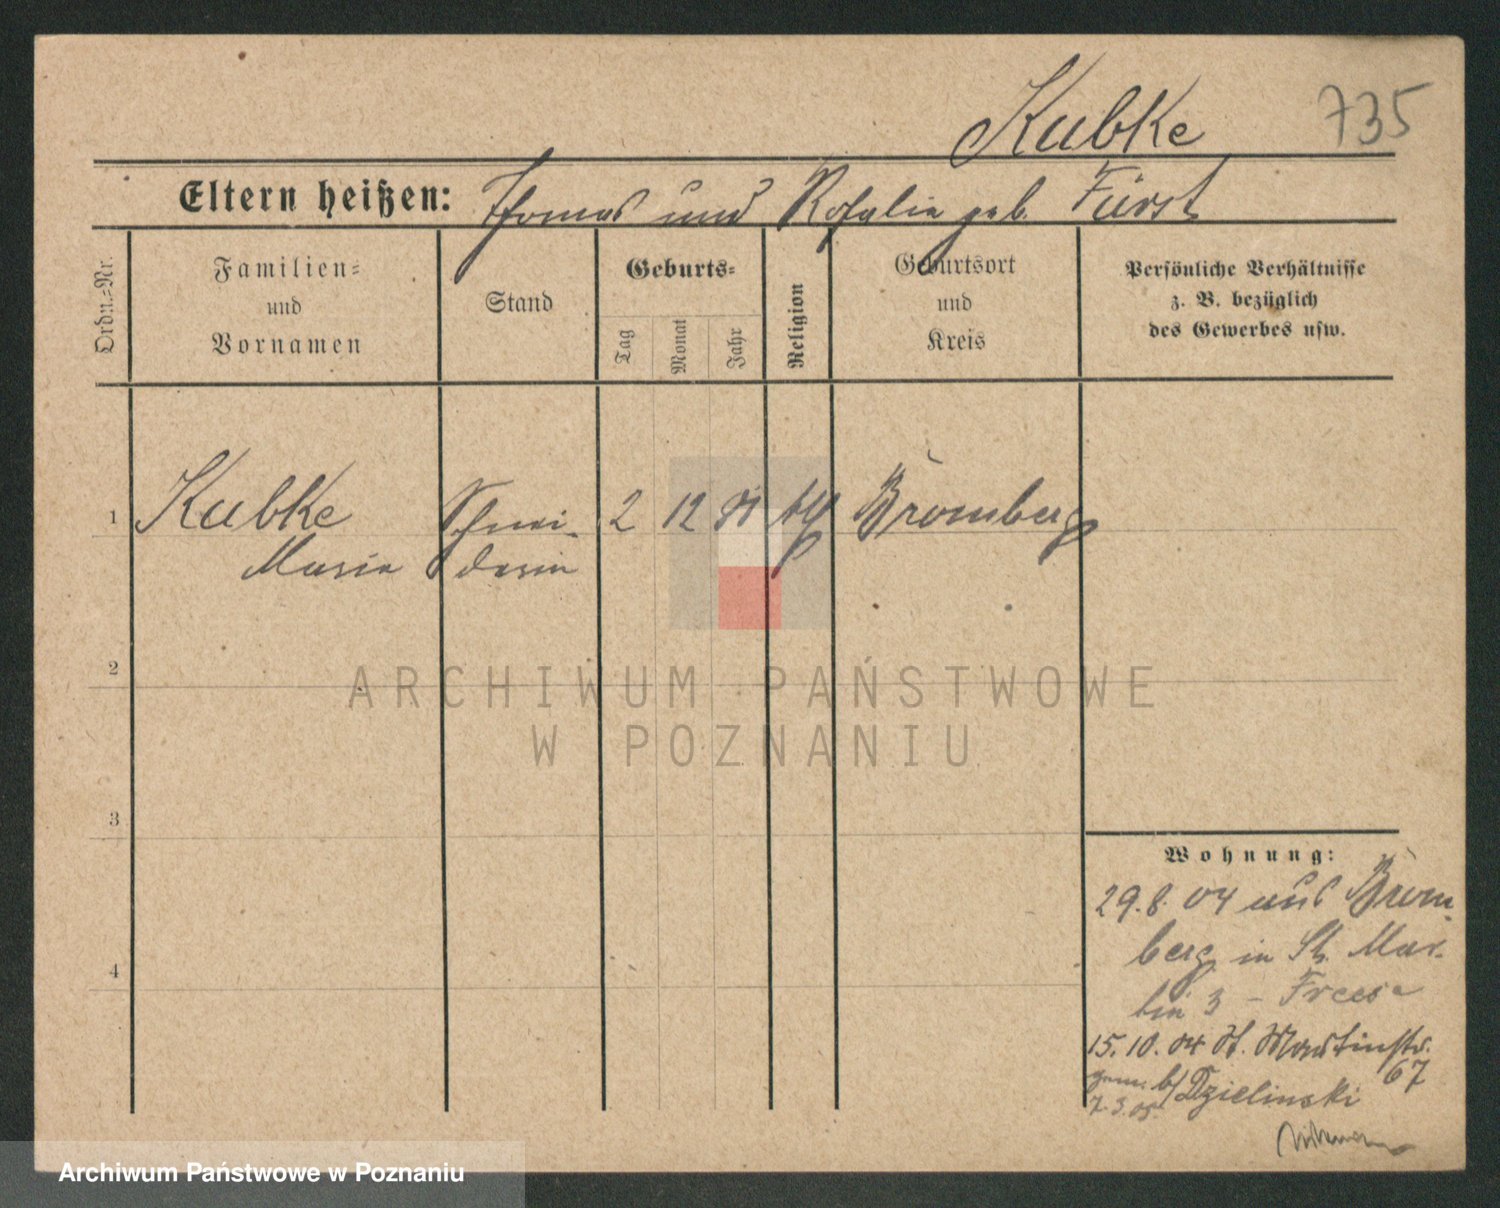 Kubke
735
Eltern heißen: Thomas und Rosalie geb. Fürst
Ordn.-Nr.
Familien-
und
Vornamen
Stand
Geburts-
Tag
Monat
Jahr
Religion
Geburtsort
und
Kreis
Persönliche Verhältnisse
z. B. bezüglich
des Gewerbes usw.
1
Kubke
Maria
Schnei-
derin
2
12
81
kth
Bromberg
2
3
4
Wohnung:
29.8.04 aus Brom-
berg in St. Mar-
tin 3 - Freese
15.10.04 St. Martinstr.
67
b/ Dzielinski
ARCHIWUM PAŃSTWOWE
W POZNANIU
Archiwum Państwowe w Poznaniu